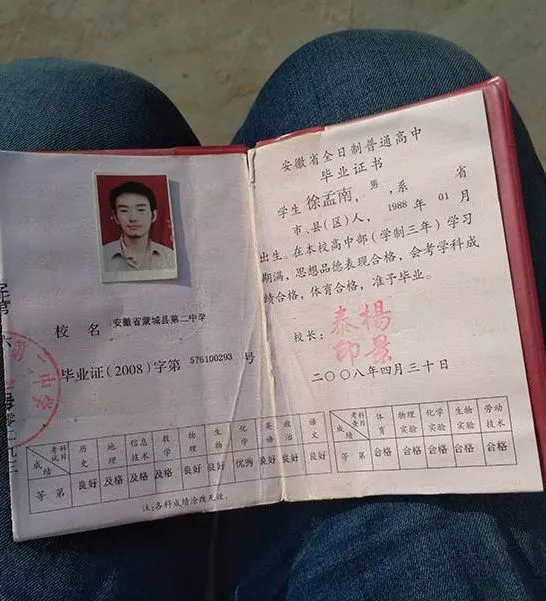 校 名 安徽省蒙城县第二中学
毕业证(2008)字第 576100293 号
考试科目 历史 地理 信息技术 数学 物理 生物 化学 英语 政治 语文
成绩
等 第 良好 及格 及格 及格 良好 良好 优秀 良好 良好 良好
注:各科成绩涂改无效。
安徽省全日制普通高中
毕业证书
学生 徐孟南,男,系 省
市、县(区)人, 1988 年 01 月
出生。在本校高中部(学制三年)学习
期满,思想品德表现合格,会考学科成
绩合格,体育合格,准予毕业。
校长: 楊景泰印
二〇〇八年四月三十日
考查科目 体育 物理实验 化学实验 生物实验 劳动技术
成绩
等 第 合格 合格 合格 合格 合格